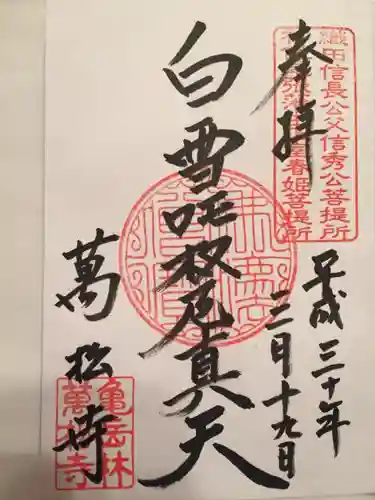 奉拝
織田信長公父信秀公菩提所
春姫菩提所
平成三十年
三月十九日
白雪吒枳尼真天
萬松寺
亀岳林
萬松寺